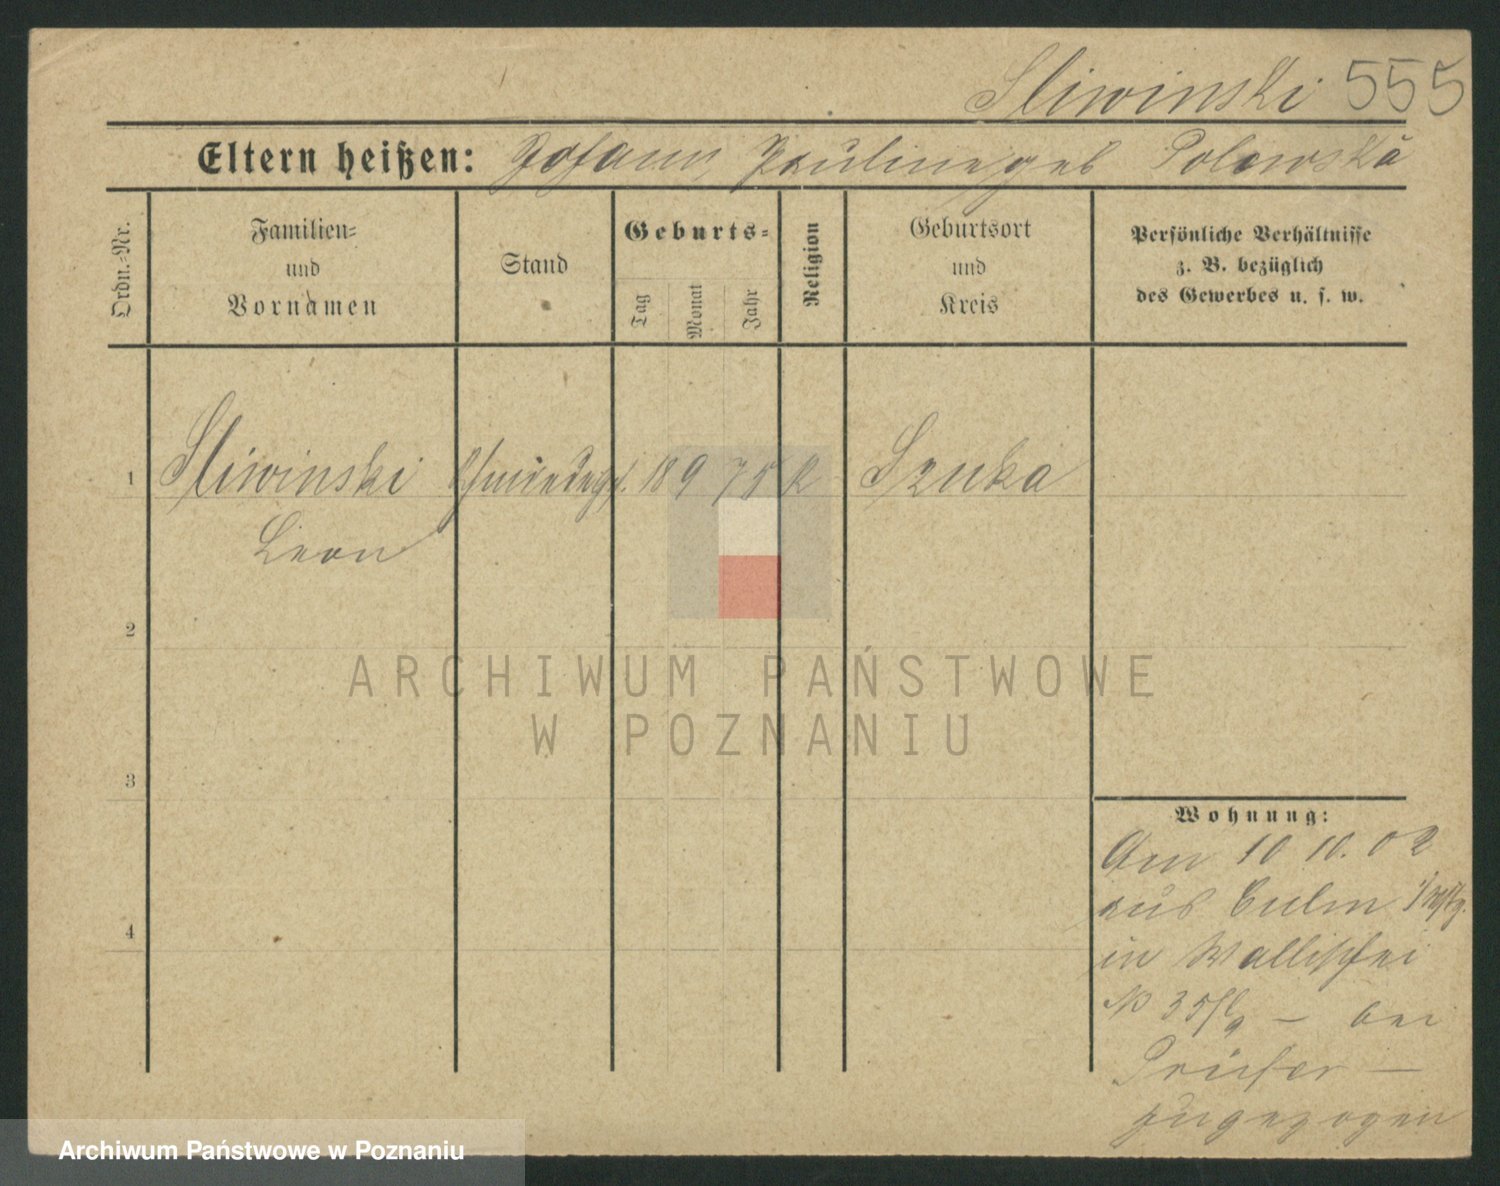 Sliwinski 555
Eltern heißen: Johann, Pauline geb Polowska
Ordn.-Nr.
Familien-
und
Vornamen
Stand
Geburts-
Tag
Monat
Jahr
Religion
Geburtsort
und
Kreis
Persönliche Verhältnisse
z. B. bezüglich
des Gewerbes u. s. w.
1 Sliwinski 18 9 75 K Szuka
Leon
2
3
4
Wohnung:
Am 10 10. 02
aus Culm
in Wallischei
No 35 — bei
Prüfer —
zugezogen
ARCHIWUM PAŃSTWOWE
W POZNANIU
Archiwum Państwowe w Poznaniu